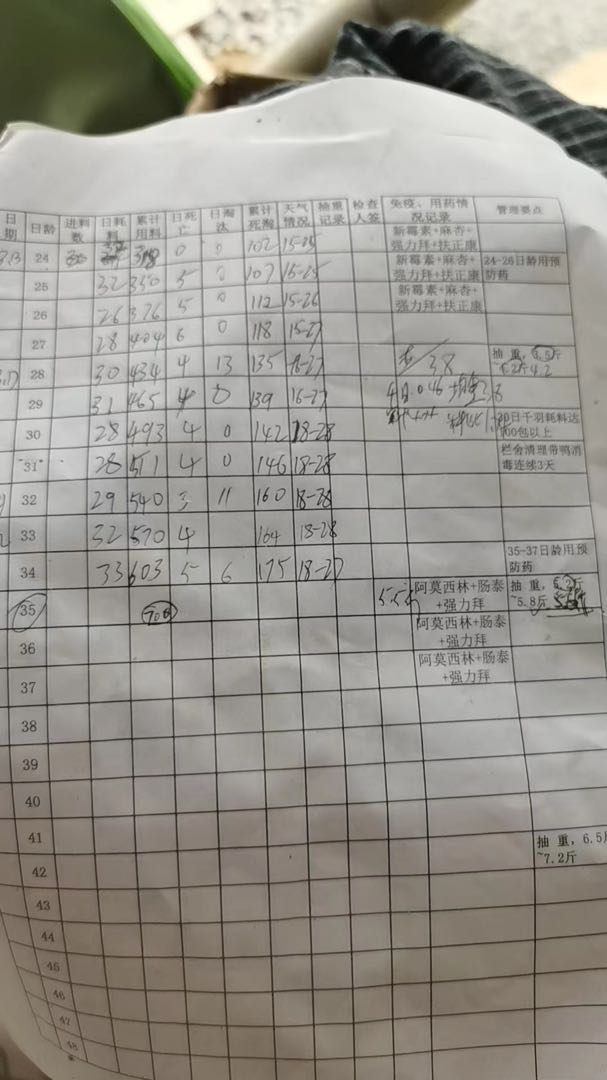 日期 日龄 进料数 日耗料 累计用料 日死亡 日淘汰 累计死淘 天气情况 抽重记录 检查人签 免疫、用药情况记录 管理要点
24 318 0 0 102 15-25 新霉素+麻杏+强力拜+扶正康
25 32 350 5 0 107 15-25 新霉素+麻杏+强力拜+扶正康 24-26日龄用预防药
26 26 376 5 0 112 15-26 新霉素+麻杏+强力拜+扶正康
27 28 404 6 0 118 15-27
28 30 434 4 13 135 18-27 3.8 抽重,
29 31 465 4 0 139 16-27
30 28 493 4 0 142 18-28 30日千羽耗料达100包以上
31 28 511 4 0 146 18-28 栏舍清理带鸭消毒连续3天
32 29 540 3 11 160 18-28
33 32 570 4 164 18-28
34 33 603 5 6 175 18-27 35-37日龄用预防药
35 700 阿莫西林+肠泰+强力拜 抽重, ~5.8斤
36 阿莫西林+肠泰+强力拜
37 阿莫西林+肠泰+强力拜
38
39
40
41
42 抽重, 6.5斤~7.2斤
43
44
45
46
47
48